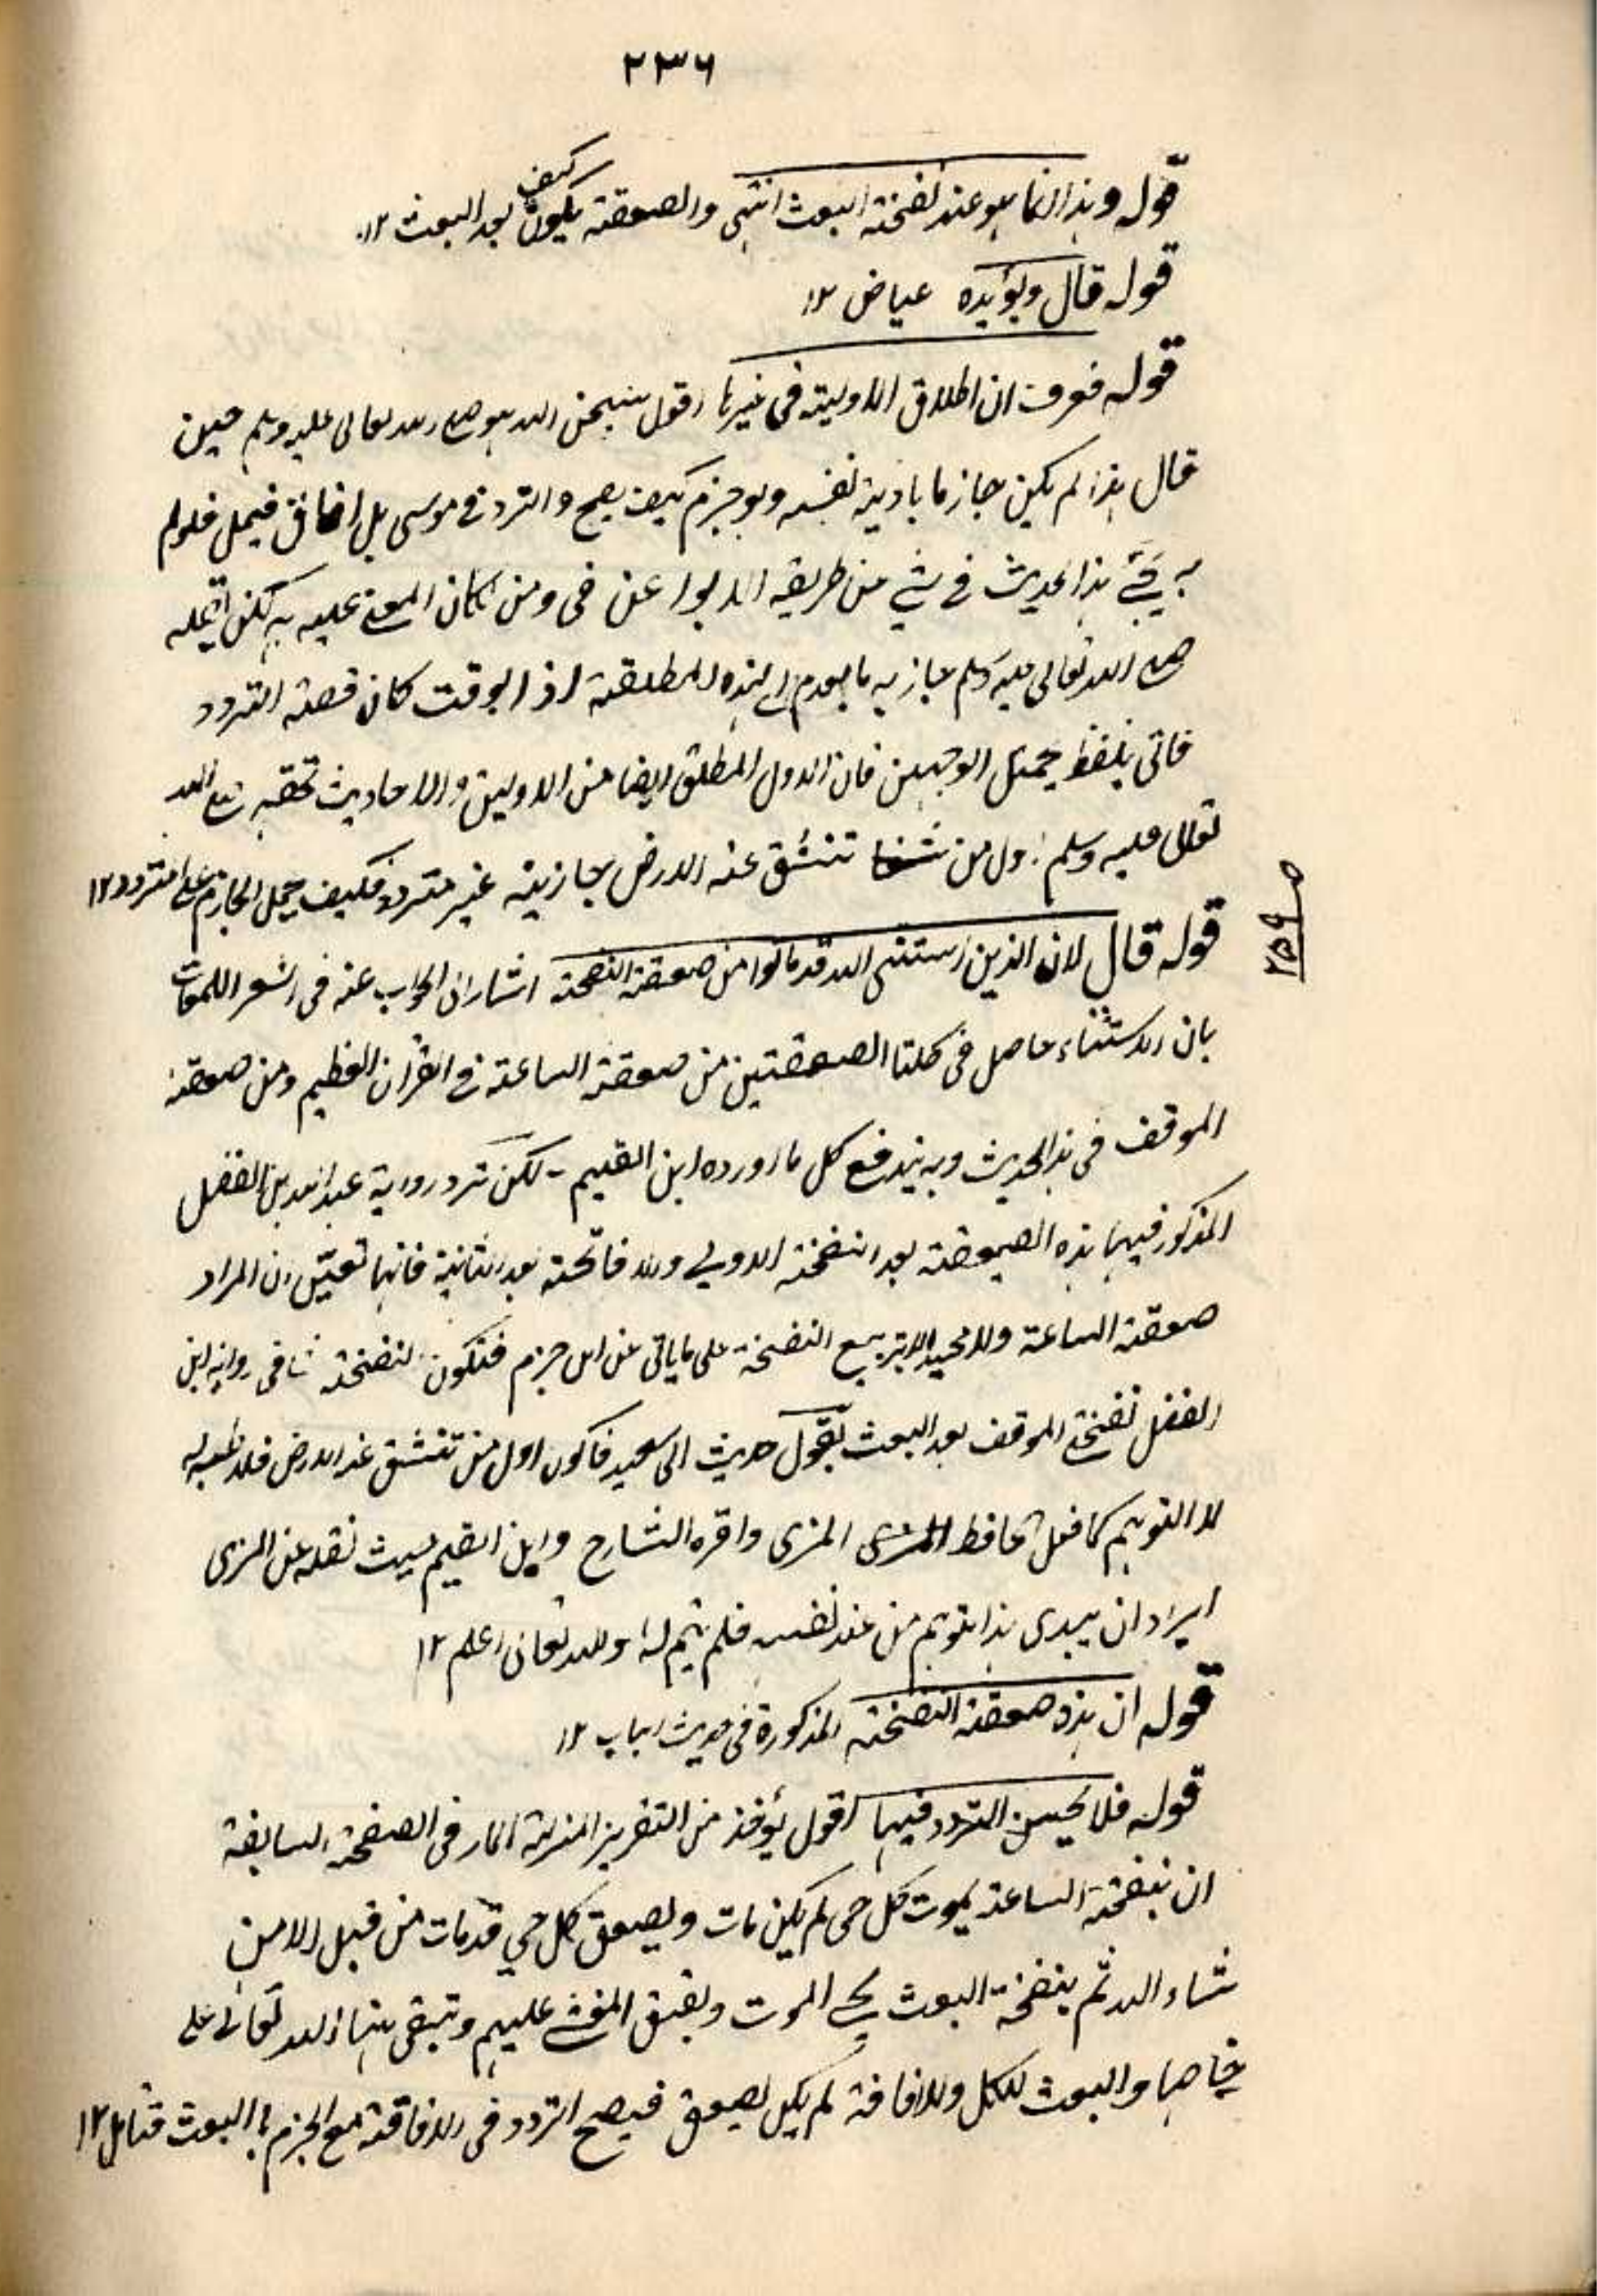 ٢٣٦
قوله وهذا انما هو عند نفخة البعث انتهى والصعقة كيف يكون بعد البعث ١٢
قوله قال ويؤيده عياض ١٢
قوله فعرف ان اطلاق الاولية فى غيرها اقول سبحن الله هو صلى الله تعالى عليه وسلم حين
قال هذا لم يكن جازما باولية نفسه ولو جزم كيف يصح والترد فى موسى بل فلولم
يجئ هذا الحديث فى شئ من طريقه الا عن ومن كان عليه لكن
صلى الله تعالى عليه وسلم جاز به المطلقة اذ الوقت كان قصة التردد
فاتى بلفظ يحتمل الوجهين فان الاول المطلق ايضا من الاولين والاحاديث صلى الله
تعالى عليه وسلم اول من تنشق عنه الارض جازمة غير مترددة فكيف يحمل الجازم على المتردد ١٢
قوله قال لان الذين استثنى الله قد ماتوا من صعقة النفخة اشار الى الجواب عنه فى اشعة اللمعات
بان الاستثناء حاصل فى كلتا الصعقتين من صعقة الساعة فى القرآن العظيم ومن صعقة
الموقف فى هذا الحديث وبه يندفع كل ما اورده ابن القيم - لكن ترد رواية عبد الله بن الفضل
المذكور فيها هذه الصعقة بعد النفخة الاولى والافاقة بعد الثانية فانها تعين ان المراد
صعقة الساعة ولا محيد الا بتربيع النفخة على ما ياتى عن ابن حزم فتكون النفختان فى رواية ابن
الفضل نفختى الموقف بعد البعث بقول حديث ابى سعيد فاكون اول من تنشق عنه الارض فلا
الا التوهيم كما فعل الحافظ المزى واقره الشارح وابن القيم حيث نقله عن المزى
ايراد ان يبدى هذا التوهم من عند نفسه فلم يتم له والله تعالى اعلم ١٢
قوله ان هذه صعقة النفخة المذكورة فى حديث الباب ١٢
قوله فلا يحسن التردد فيها اقول يؤخذ من التقرير المار فى الصفحة السابقة
ان بنفخة الساعة يموت كل حى لم يكن مات ويصعق كل حى قد مات من قبل الا من
شاء الله ثم بنفخة البعث يحى الموت ويفيق المغشى عليهم وتبقى الله تعالى على
حالها والبعث للكل والافاقة لم يكن لصعق فيصح التردد فى الافاقة مع الجزم بالبعث فتامل ١٢
ص ٢٥٩